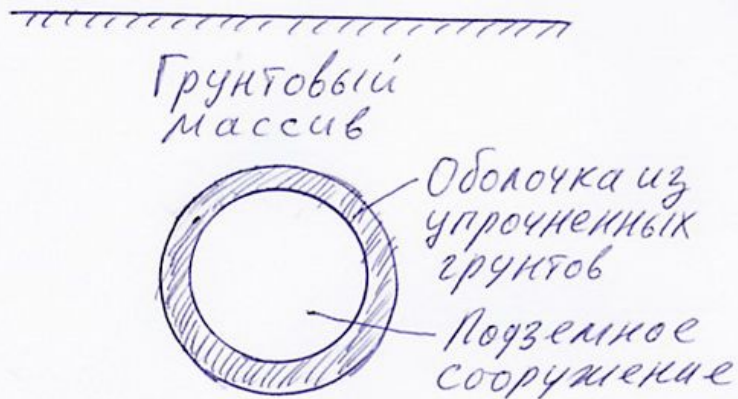 Грунтовый
массив
Оболочка из
упрочненных
грунтов
Подземное
сооружение